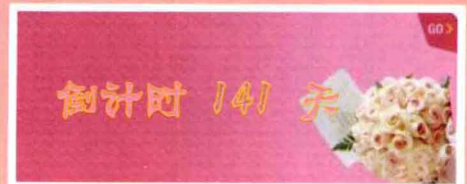 GO >
倒计时 141 天